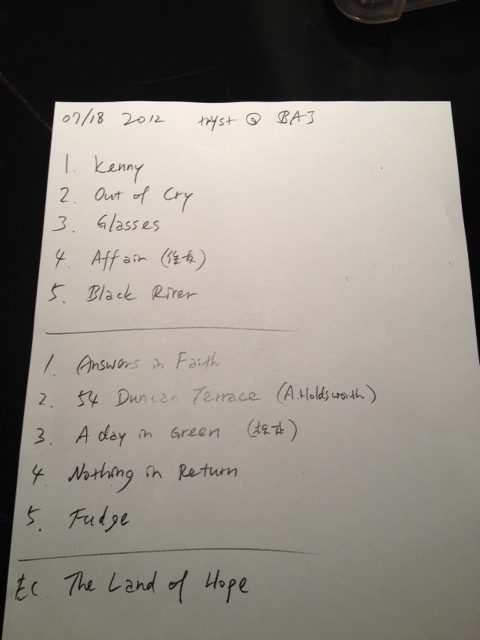 07/18 2012 tryst @ BAJ
1. Kenny
2. Out of Cry
3. Glasses
4. Affair
5. Black River
1. Answers in Faith
2. 54 Duncan Terrace (A.Holdsworth)
3. A day in Green
4. Nothing in Return
5. Fudge
EC. The Land of Hope